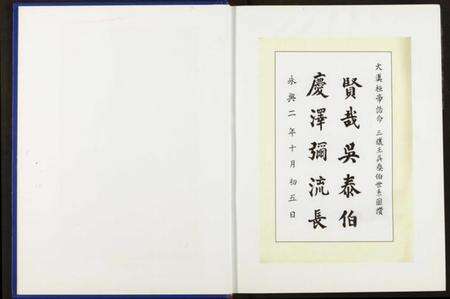 大漢桓帝詔命 三讓王吳泰伯世系圖讚
賢哉吳泰伯
慶澤彌流長
永興二年十月初五日